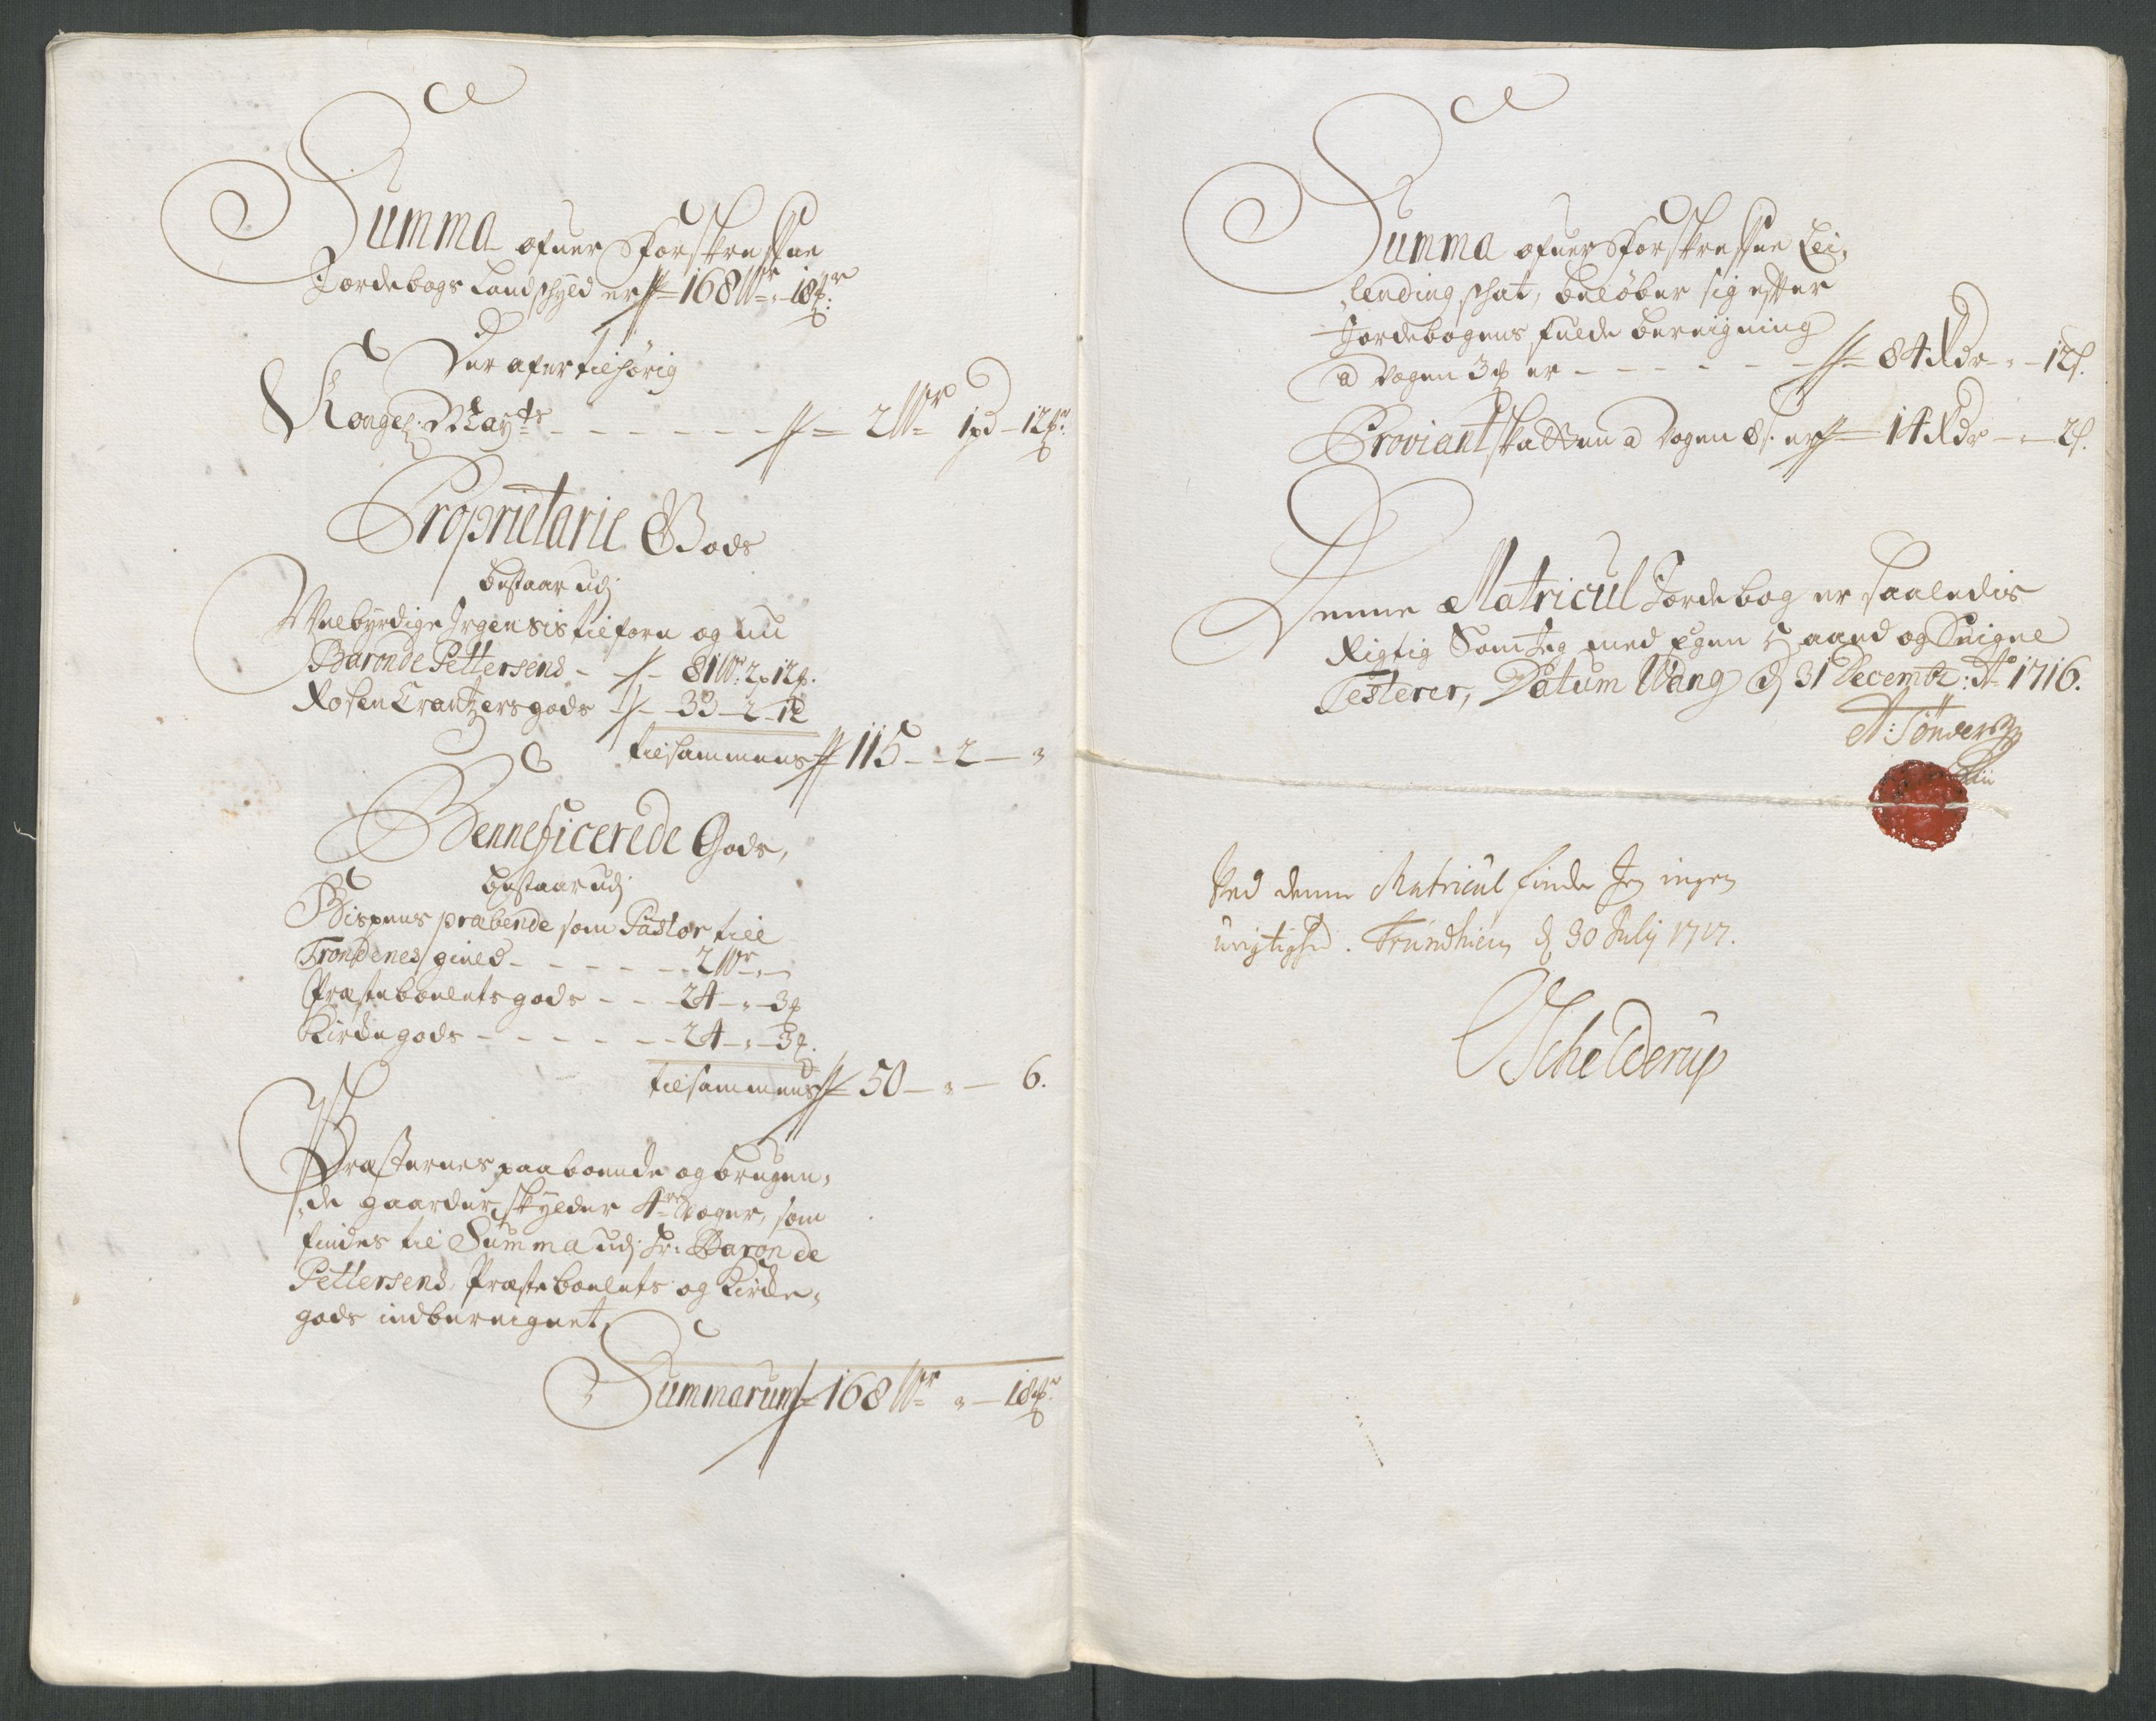 Summa ofuer Forskreffne
Jordebogs Landschyld er 168 Wr „ 18 ℔r
Der afer tilhörig
Kongel: Mayts – – – – – – 2 Wr 1 pd – 12 ℔r
Proprietarie Gods
bestaar udj
Welbyrdige Irgensis tilforn og nu
Baron de Pettersens – 81 W: 2 p 12 ℔.
Rosen Crantzers gods – 33 – 2 – 12
tilsammens 115 – 2 – „
Benneficerede Gods,
bestaar udj
Bispens præbende som Pastor till
Trondenes gives – – – – – 2 Wr „ –
Præstebolets gods – – – 24 – „ – 3 ℔
Kirche gods – – – – – – 24 – „ – 3 ℔.
tilsammens 50 – „ – 6.
Præsternes paaboende og brugen,
„de gaarder skylder 4re Voger, som
findes til Summa udj Hr: Baron de
Pettersens, Præstebolets og Kirche,
gods indbereignet,
Summarum 168 Wr „ – 18 ℔r
Summa ofuer Forskrefne Lei,
„lending schat, beløber sig efter
Jordebogens fulde bereigning
a Vogen 3 ℔ er – – – – – – 84 Rdr – „ – 12 s.
Proviant skatten a Vogen 8 s. er 14 Rdr – „ – 2 s.
Denne Matricul Jordebog er saaledis
Rigtig Som Jeg med Egen Haand og Seigne
Testerer, Datum Wang d 31 Decembr: Ao 1716.
A: Tönder
Ved denne Matricul finder Jeg ingen
urigtighed. Trundhiem d 30 July 1717.
Schelderup